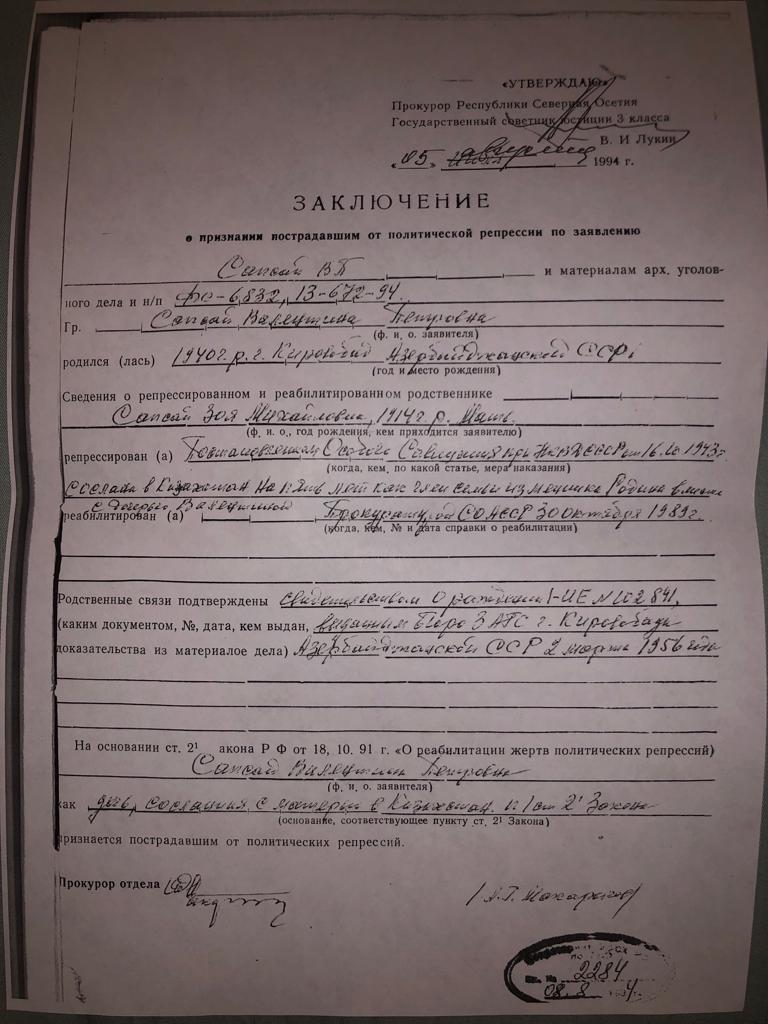 «УТВЕРЖДАЮ»
Прокурор Республики Северная Осетия
Государственный советник юстиции 3 класса
В. И Лукин
«05» августа 1994 г.
ЗАКЛЮЧЕНИЕ
о признании пострадавшим от политической репрессии по заявлению
Сапсай В П и материалам арх. уголов-
ного дела и н/п фс-6832, 13-672-94.
Гр. Сапсай Валентина Петровна
(ф. и, о. заявителя)
родился (лась) 1940 г. р. г. Кировабад Азербайджанской ССР
(год и место рождения)
Сведения о репрессированном и реабилитированном родственнике
Сапсай Зоя Михайловна, 1914 г. р. Мать.
(ф. и. о., год рождения, кем приходится заявителю)
репрессирован (а) Постановлением Особого Совещания при НКВД СССР от 16. 1943 г.
(когда, кем, по какой статье, мера наказания)
сослана в Казахстан на пять лет как член семьи изменника Родины вместе
с дочерью Валентиной
реабилитирован (а) Прокуратурой СО АССР 30 октября 1989 г.
(когда, кем, № и дата справки о реабилитации)
Родственные связи подтверждены свидетельством о рождении I-ИЕ N 102841,
(каким документом, №, дата, кем выдан, выданным Бюро ЗАГС г. Кировабада
доказательства из материалое дела) Азербайджанской ССР 2 марта 1956 года
На основании ст. 2¹ акона Р Ф от 18, 10. 91 г. «О реабилитации жертв политических репрессий)
Сапсай Валентина Петровна
(ф. и. о. заявителя)
как дочь, сосланная с матерью в Казахстан. п. 1 ст 2¹ Закона
(основание, соответствующее пункту ст. 2¹ Закона)
признается пострадавшим от политических репрессий.
Прокурор отдела
2284
08. 8